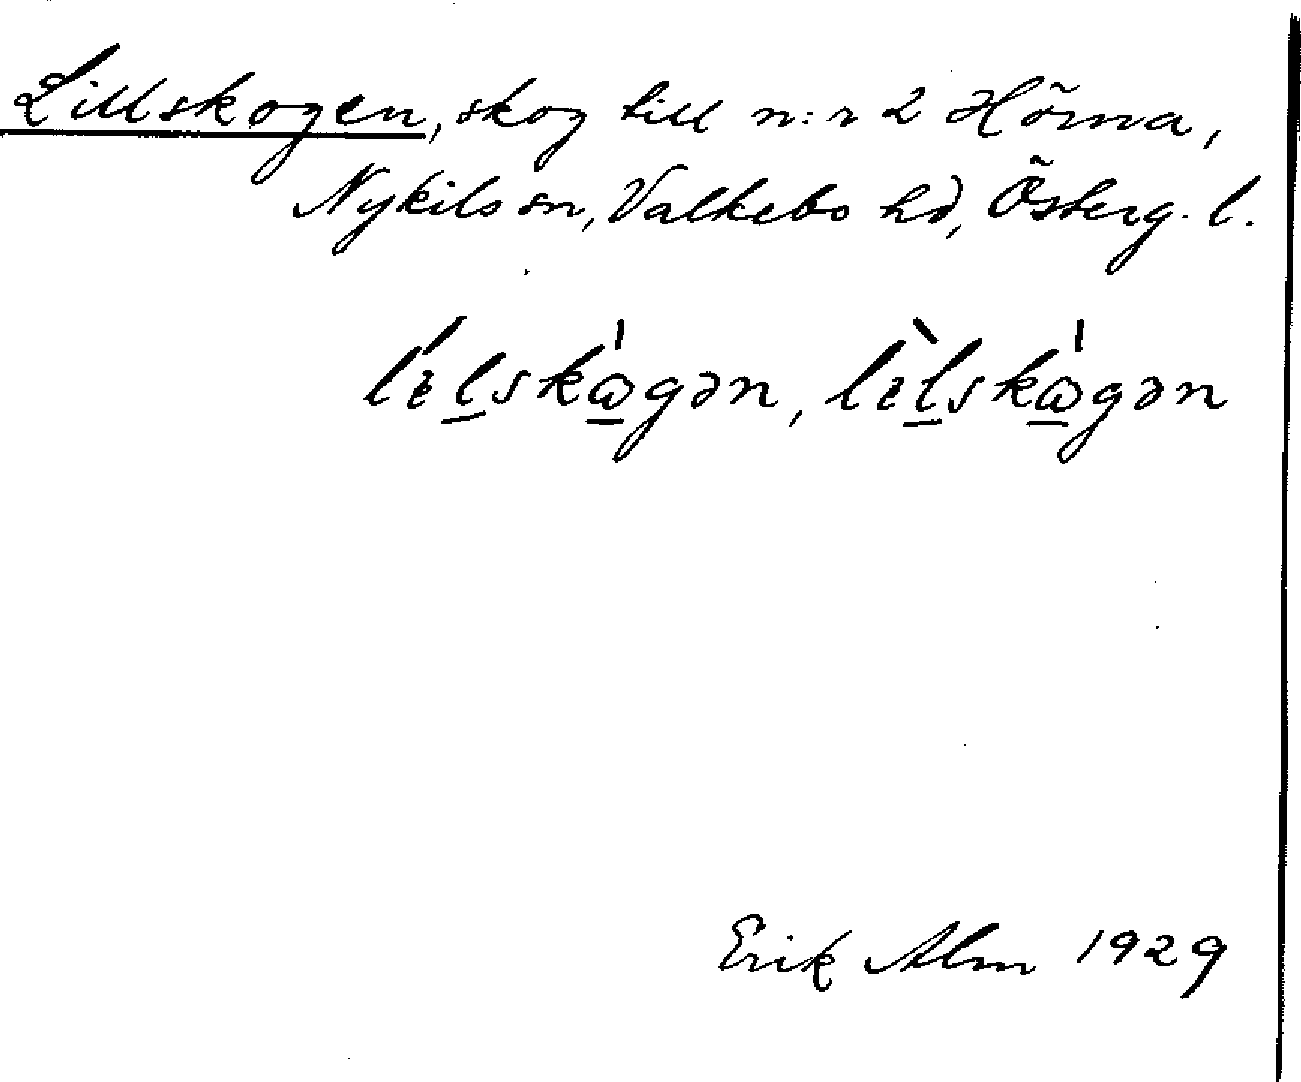 Lillskogen, skog till n:r 2 Hörna,
Nykils sn, Valkebo hd, Österg. l.
lı́l̲skὼ̲gən, lı̀l̲skὼ̲gən
Erik Alm 1929